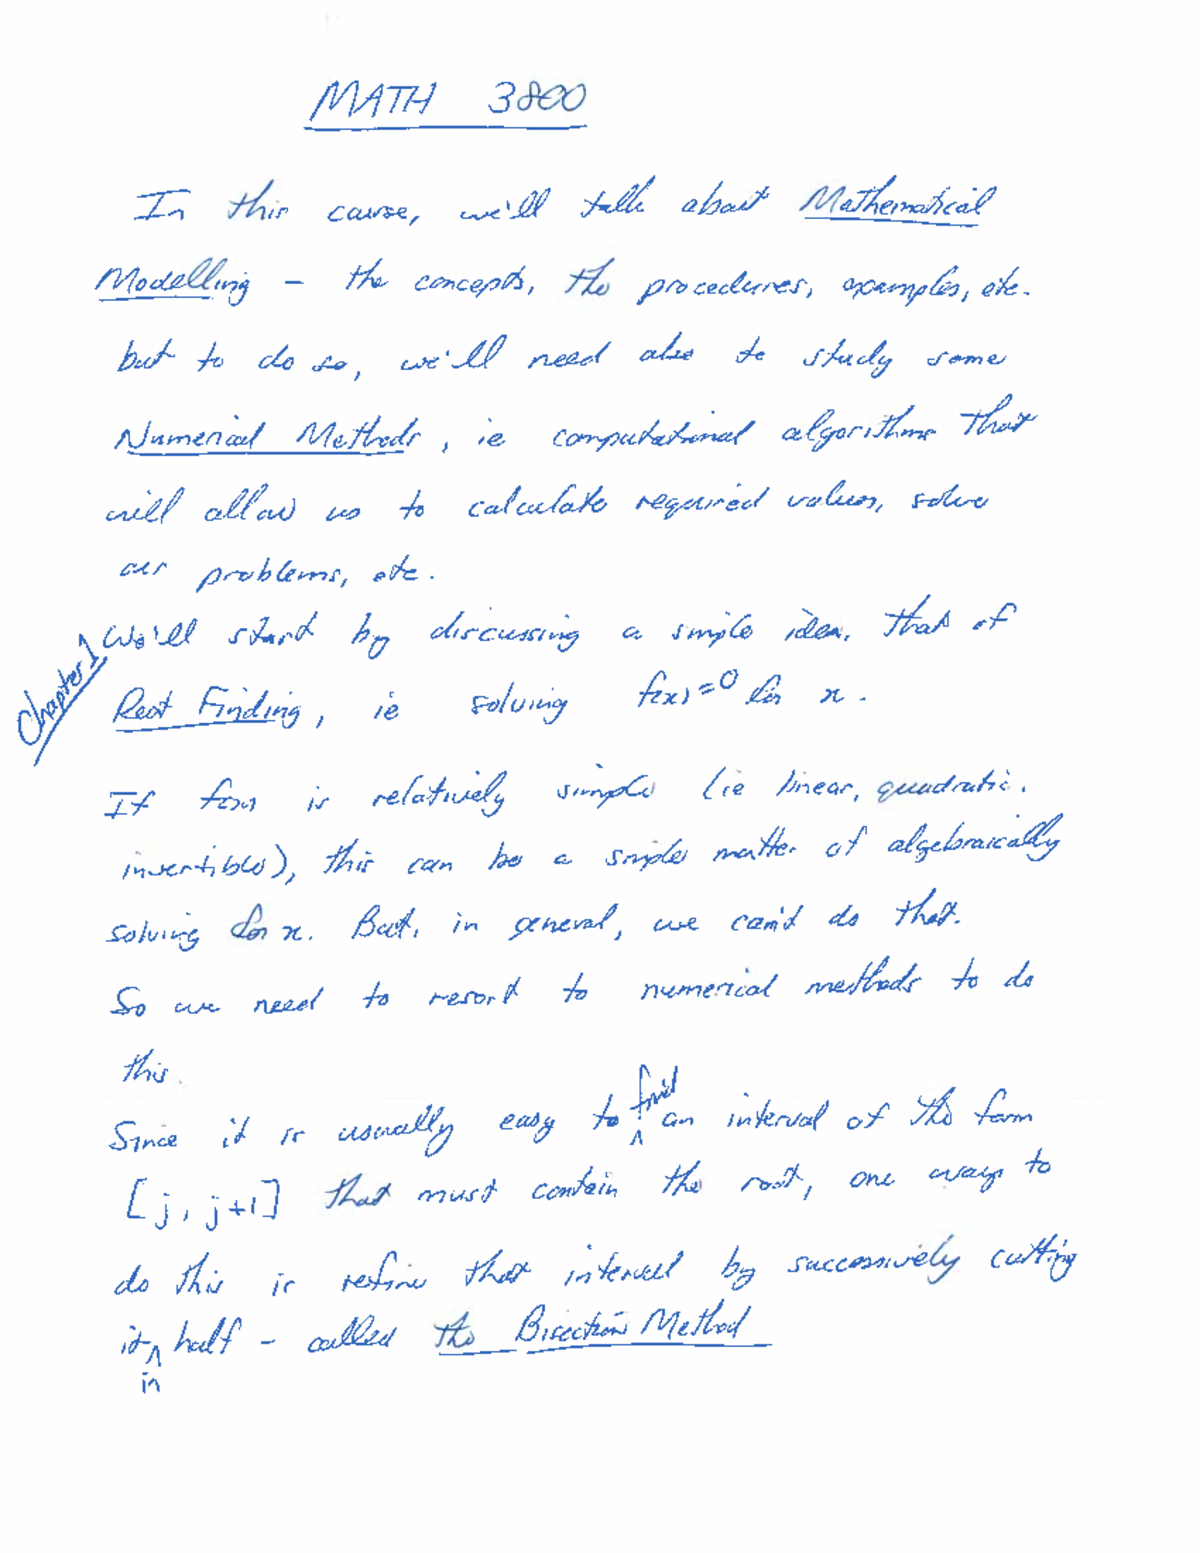 MATH 3800
In this course, we'll talk about Mathematical
Modelling – the concepts, the procedures, examples, etc.
but to do so, we'll need also to study some
Numerical Methods, ie computational algorithms that
will allow us to calculate required values, solve
our problems, etc.
Chapter 1
We'll start by discussing a simple idea, that of
Root Finding, ie solving f(x)=0 for x.
If f(x) is relatively simple (ie linear, quadratic,
invertible), this can be a simple matter of algebraically
solving for x. But, in general, we can't do that.
So we need to resort to numerical methods to do
this.
Since it is usually easy to find an interval of the form
[j, j+1] that must contain the root, one way to
do this is refine that interval by successively cutting
it in half – called the Bisection Method